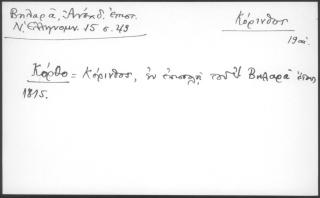 Βηλαρᾶ, Ἀνέκδ. ἐπιστ.
Ν. Ἑλληνομν. 15 σ. 49
Κόρινθος
19 αἰ.
Κόρθο = Κόρινθος, ἐν ἐπιστολῇ τοῦ Βηλαρᾶ ἔτους
1815.